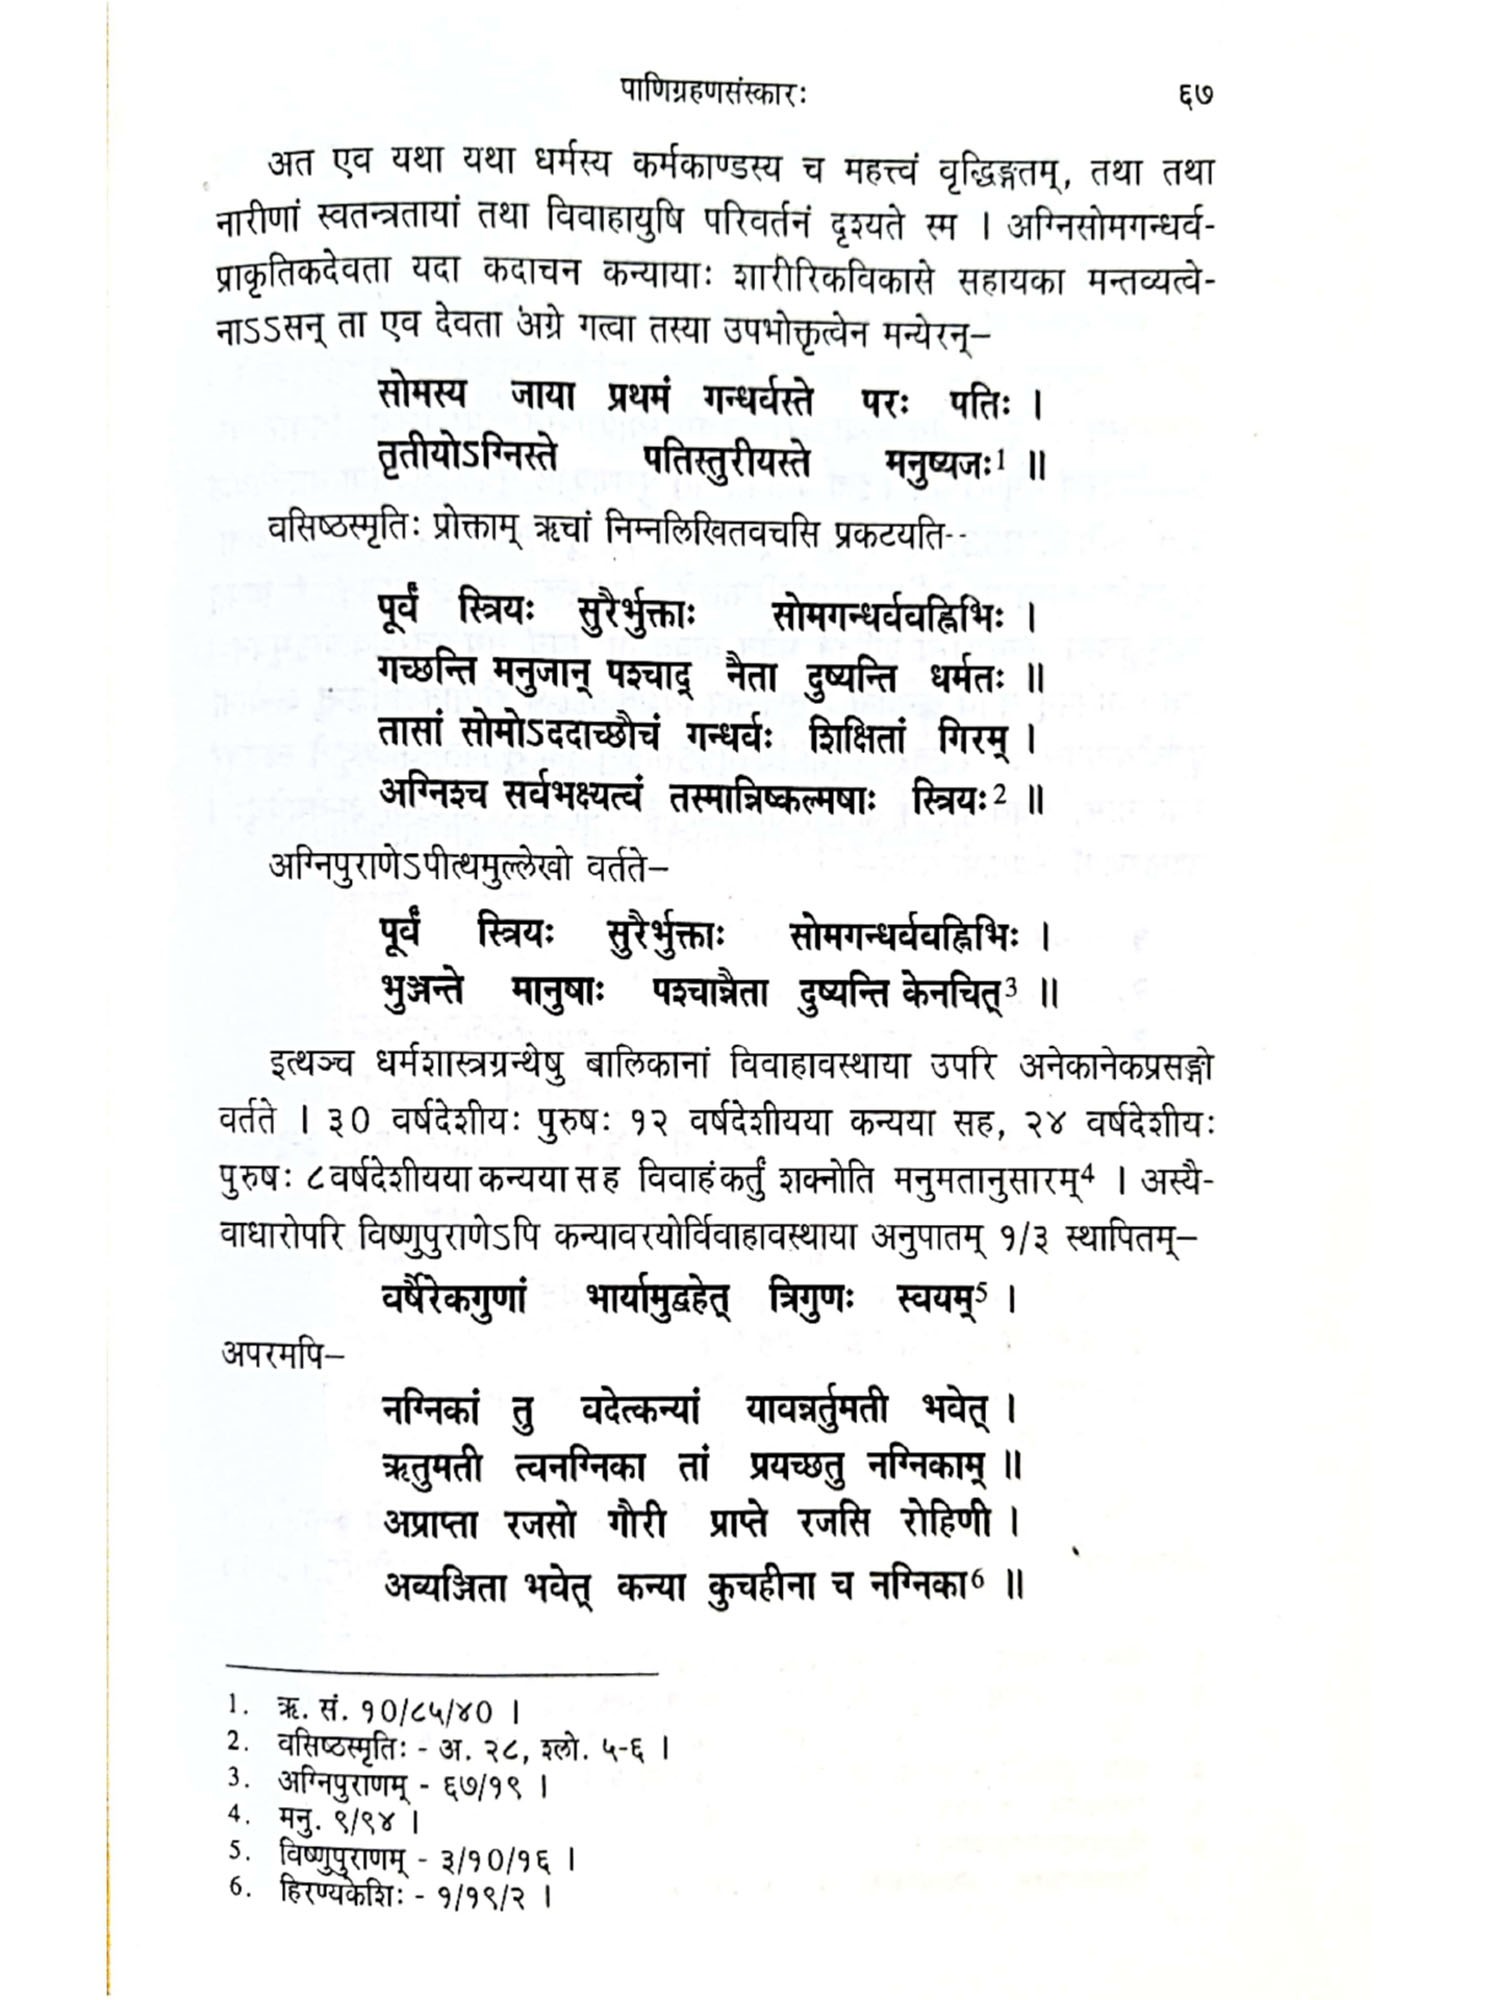 पाणिग्रहणसंस्कारः ६७
अत एव यथा यथा धर्मस्य कर्मकाण्डस्य च महत्त्वं वृद्धिङ्गतम्, तथा तथा
नारीणां स्वतन्त्रतायां तथा विवाहायुषि परिवर्तनं दृश्यते स्म । अग्निसोमगन्धर्व-
प्राकृतिकदेवता यदा कदाचन कन्यायाः शारीरिकविकासे सहायका मन्तव्यत्वे-
नाऽऽसन् ता एव देवता अग्रे गत्वा तस्या उपभोक्तृत्वेन मन्येरन्–
सोमस्य जाया प्रथमं गन्धर्वस्ते परः पतिः ।
तृतीयोऽग्निस्ते पतिस्तुरीयस्ते मनुष्यजः1 ॥
वसिष्ठस्मृतिः प्रोक्ताम् ऋचां निम्नलिखितवचसि प्रकटयति--
पूर्वं स्त्रियः सुरैर्भुक्ताः सोमगन्धर्ववह्निभिः ।
गच्छन्ति मनुजान् पश्चाद् नैता दुष्यन्ति धर्मतः ॥
तासां सोमोऽददाच्छौचं गन्धर्वः शिक्षितां गिरम् ।
अग्निश्च सर्वभक्ष्यत्वं तस्मान्निष्कल्मषाः स्त्रियः2 ॥
अग्निपुराणेऽपीत्थमुल्लेखो वर्तते–
पूर्वं स्त्रियः सुरैर्भुक्ताः सोमगन्धर्ववह्निभिः ।
भुञ्जन्ते मानुषाः पश्चान्नैता दुष्यन्ति केनचित्3 ॥
इत्थञ्च धर्मशास्त्रग्रन्थेषु बालिकानां विवाहावस्थाया उपरि अनेकानेकप्रसङ्गो
वर्तते । ३० वर्षदेशीयः पुरुषः १२ वर्षदेशीयया कन्यया सह, २४ वर्षदेशीयः
पुरुषः ८वर्षदेशीयया कन्यया सह विवाहं कर्तुं शक्नोति मनुमतानुसारम्4 । अस्यै-
वाधारोपरि विष्णुपुराणेऽपि कन्यावरयोर्विवाहावस्थाया अनुपातम् १/३ स्थापितम्–
वर्षैरेकगुणां भार्यामुद्वहेत् त्रिगुणः स्वयम्5 ।
अपरमपि–
नग्निकां तु वदेत्कन्यां यावन्नर्तुमती भवेत् ।
ऋतुमती त्वनग्निका तां प्रयच्छतु नग्निकाम् ॥
अप्राप्ता रजसो गौरी प्राप्ते रजसि रोहिणी ।
अव्यञ्जिता भवेत् कन्या कुचहीना च नग्निका6 ॥
1. ऋ. सं. १०/८५/४० ।
2. वसिष्ठस्मृतिः - अ. २८, श्लो. ५-६ ।
3. अग्निपुराणम् - ६७/१९ ।
4. मनु. ९/९४ ।
5. विष्णुपुराणम् - ३/१०/१६ ।
6. हिरण्यकेशिः - १/१९/२ ।